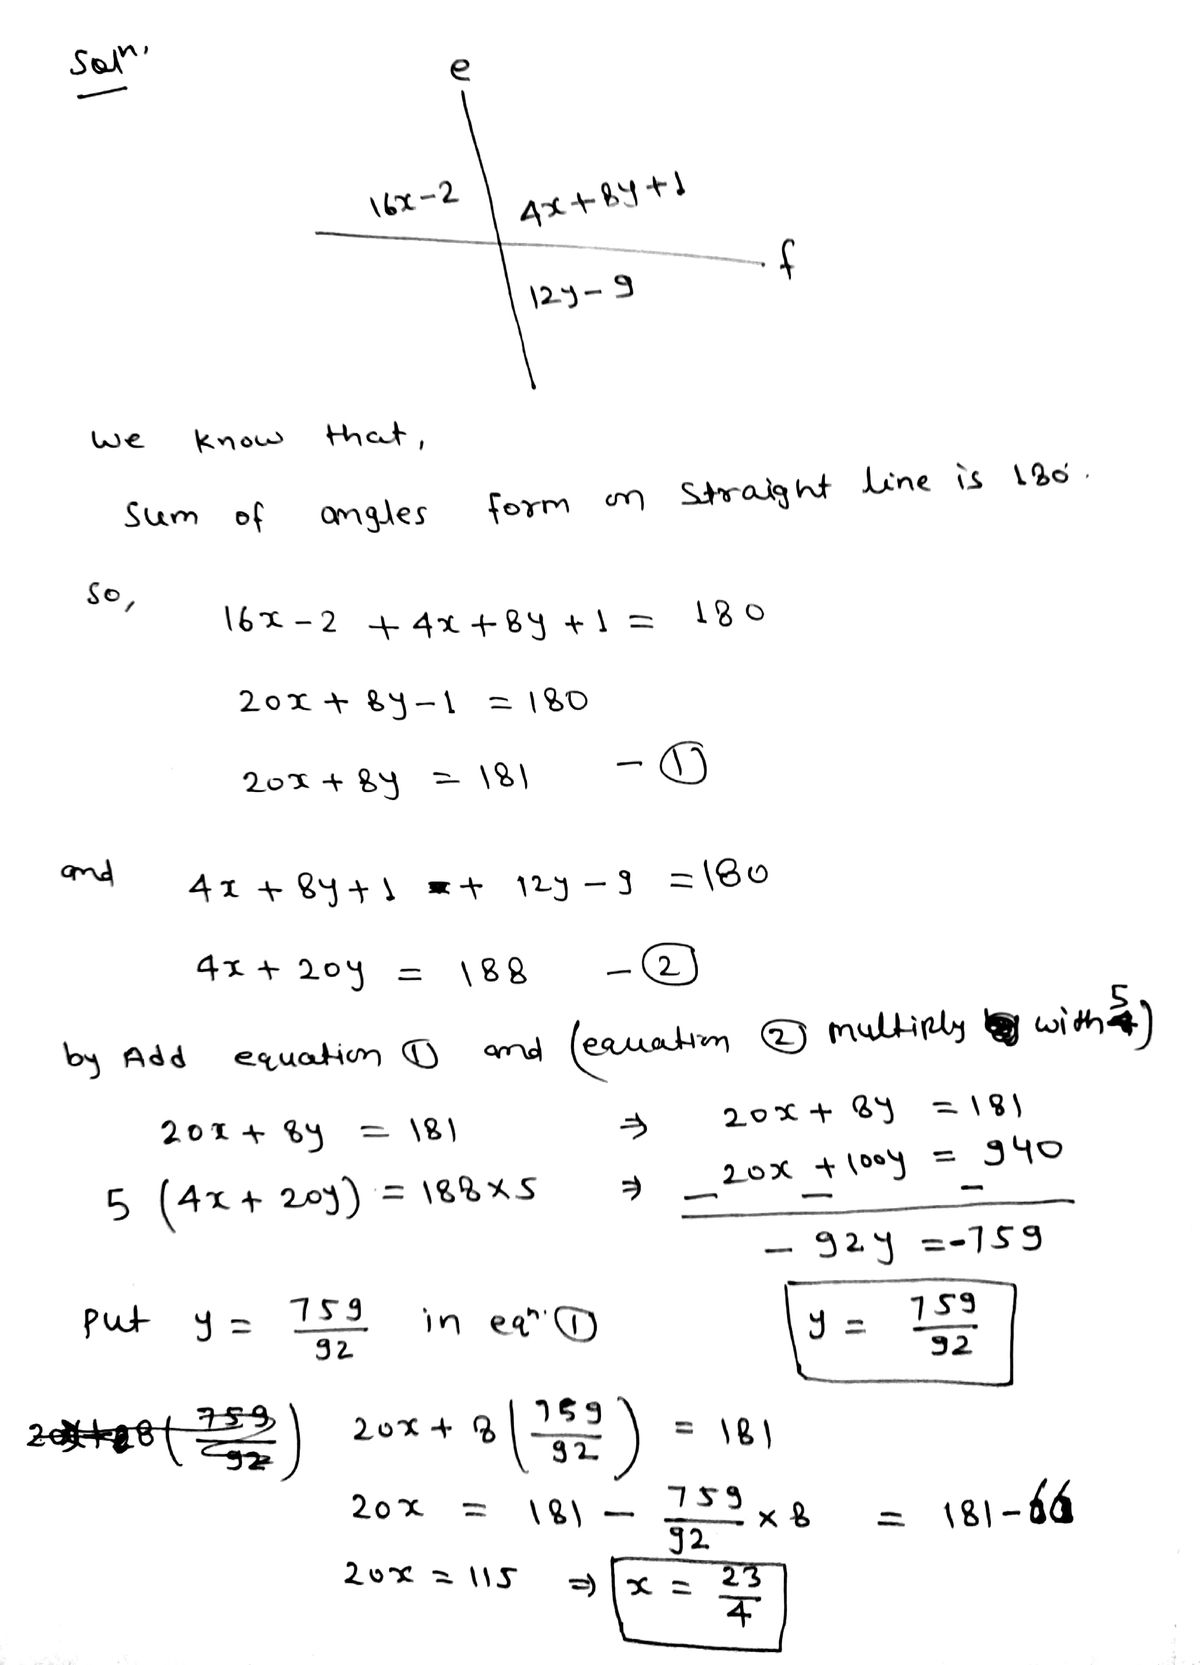 Solⁿ.
e
16x-2
4x+8y+1
f
12y-9
we know that,
Sum of angles form on straight line is 180.
so,
16x-2 + 4x+8y+1 = 180
20x + 8y-1 = 180
20x + 8y = 181 - ①
and
4x + 8y+1 + 12y-9 = 180
4x + 20y = 188 - ②
by Add equation ① and (equation ② multiply with 5)
20x + 8y = 181 ⇒ 20x + 8y = 181
5 (4x + 20y) = 188×5 ⇒ 20x + 100y = 940
- - -
- 92y = -759
y = 759/92
put y = 759/92 in eqⁿ. ①
20x + 8 (759/92) = 181
20x = 181 - 759/92 × 8 = 181-66
20x = 115 ⇒ x = 23/4